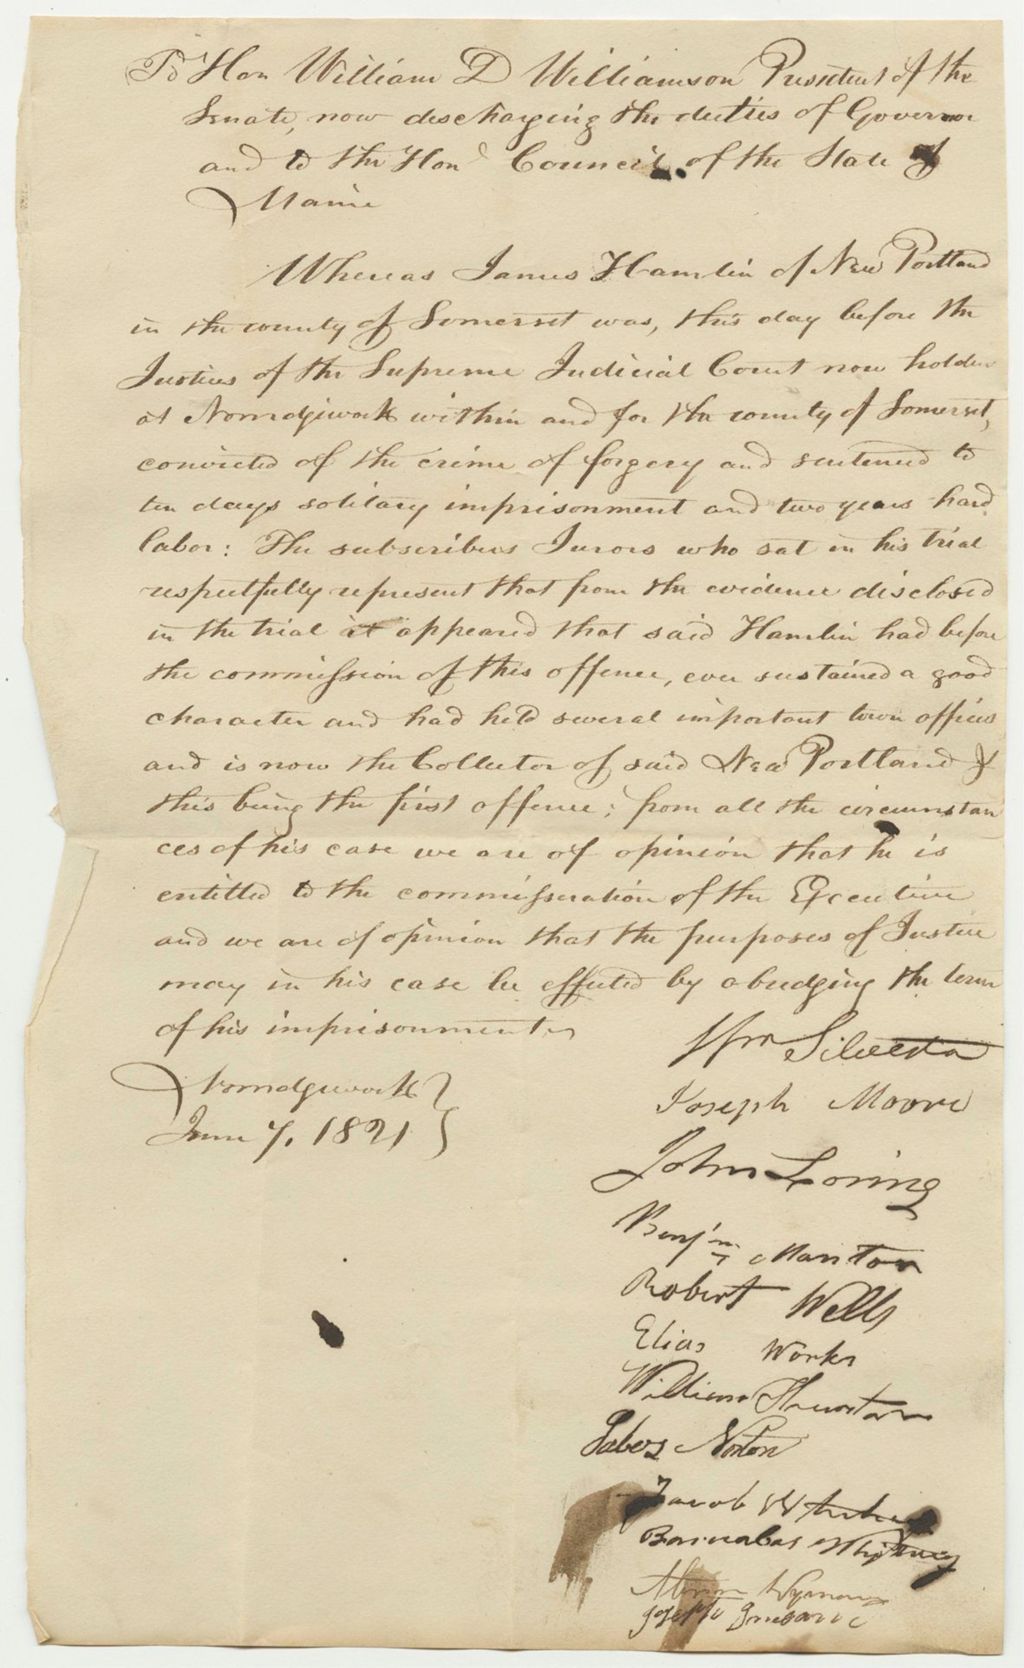 To Hon William D Williamson President of the
Senate, now discharging the duties of Governor
and to the Hond Council of the State of
Maine
Whereas James Hamlin of New Portland
in the county of Somerset was, this day before the
Justices of the Supreme Judicial Court now holden
at Norridgwock within and for the county of Somerset,
convicted of the crime of forgery and sentenced to
ten days solitary imprisonment and two years hard
labor: The subscribers Jurors who sat in his trial
respectfully represent that from the evidence disclosed
in the trial it appeared that said Hamlin had before
the commission of this offence, ever sustained a good
character and had held several important town offices
and is now the Collector of said New Portland &
this being the first offence; from all the circumstan
ces of his case we are of opinion that he is
entitled to the commisseration of the Executive
and we are of opinion that the purposes of Justice
may in his case be effected by abridging the term
of his imprisonment
Norridgewock
June 7, 1821
Wm Silvester
Joseph Moore
John Loring
Benjm Manton
Robert Wells
Elias Works
William Thurston
Jabez Norton
Jacob
Barnabas Whitney
Wyman
Joseph